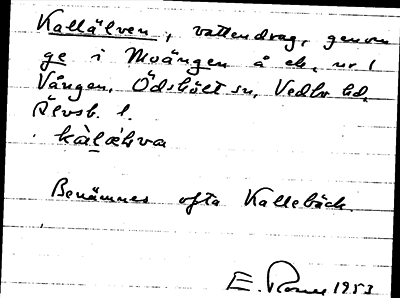 Kallälven, vattendrag, genom
ge i Moängen å ek. nr 1
Vången, Ödskölt sn, Vedbo hd,
Älvsb. l.
kàlæ̀lva
Benämnes ofta Kallebäck.
E. 1953